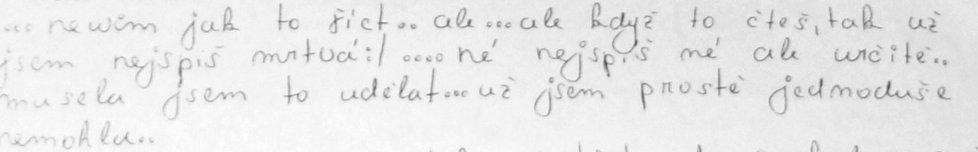 ... newim jak to říct.. ale ...ale když to čteš, tak už
jsem nejspíš mrtvá:/ .... né nejspíš né ale určitě..
musela jsem to udělat... už jsem prostě jednoduše
nemohla..